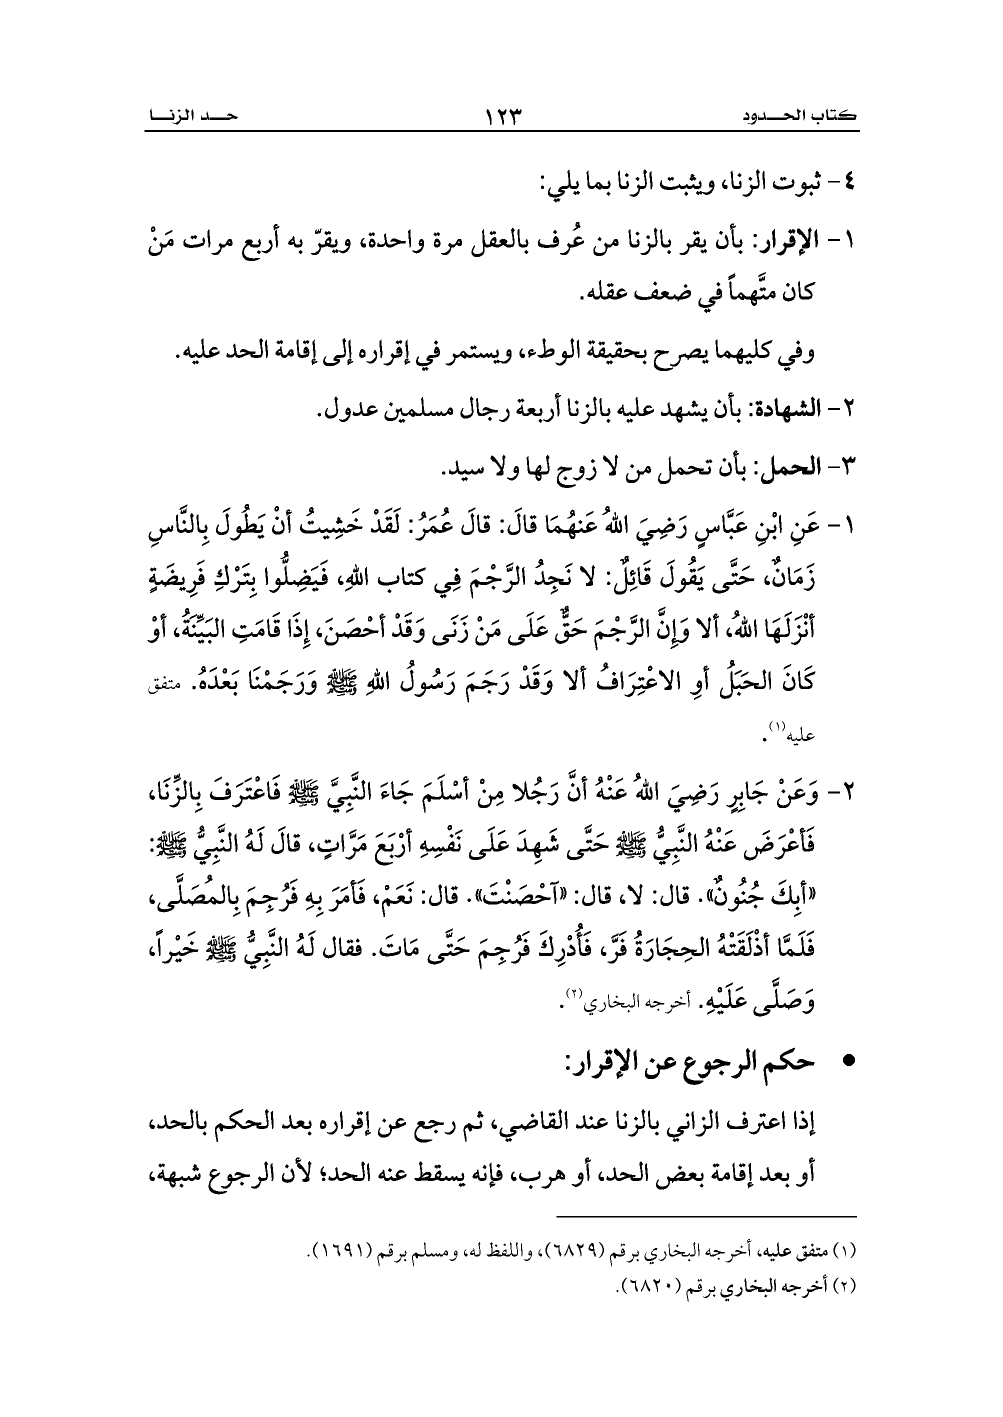 كتاب الحـــدود ١٢٣ حـــد الزنـــا
٤- ثبوت الزنا، ويثبت الزنا بما يلي:
١- الإقرار: بأن يقر بالزنا من عُرف بالعقل مرة واحدة، ويقرّ به أربع مرات مَنْ
كان متَّهماً في ضعف عقله.
وفي كليهما يصرح بحقيقة الوطء، ويستمر في إقراره إلى إقامة الحد عليه.
٢- الشهادة: بأن يشهد عليه بالزنا أربعة رجال مسلمين عدول.
٣- الحمل: بأن تحمل من لا زوج لها ولا سيد.
١- عَنِ ابْنِ عَبَّاسٍ رَضِيَ اللهُ عَنهُمَا قالَ: قالَ عُمَرُ: لَقَدْ خَشِيتُ أنْ يَطُولَ بِالنَّاسِ
زَمَانٌ، حَتَّى يَقُولَ قَائِلٌ: لا نَجِدُ الرَّجْمَ فِي كتاب اللهِ، فَيَضِلُّوا بِتَرْكِ فَرِيضَةٍ
أنْزَلَهَا اللهُ، ألا وَإِنَّ الرَّجْمَ حَقٌّ عَلَى مَنْ زَنَى وَقَدْ أحْصَنَ، إِذَا قَامَتِ البَيِّنَةُ، أوْ
كَانَ الحَبَلُ أوِ الاعْتِرَافُ ألا وَقَدْ رَجَمَ رَسُولُ اللهِ ﷺ وَرَجَمْنَا بَعْدَهُ. متفق
عليه(١).
٢- وَعَنْ جَابِرٍ رَضِيَ اللهُ عَنْهُ أنَّ رَجُلا مِنْ أسْلَمَ جَاءَ النَّبِيَّ ﷺ فَاعْتَرَفَ بِالزِّنَا،
فَأعْرَضَ عَنْهُ النَّبِيُّ ﷺ حَتَّى شَهِدَ عَلَى نَفْسِهِ أرْبَعَ مَرَّاتٍ، قالَ لَهُ النَّبِيُّ ﷺ:
«أبِكَ جُنُونٌ». قال: لا، قال: «آحْصَنْتَ». قال: نَعَمْ، فَأمَرَ بِهِ فَرُجِمَ بِالمُصَلَّى،
فَلَمَّا أذْلَقَتْهُ الحِجَارَةُ فَرَّ، فَأُدْرِكَ فَرُجِمَ حَتَّى مَاتَ. فقال لَهُ النَّبِيُّ ﷺ خَيْراً،
وَصَلَّى عَلَيْهِ. أخرجه البخاري(٢).
● حكم الرجوع عن الإقرار:
إذا اعترف الزاني بالزنا عند القاضي، ثم رجع عن إقراره بعد الحكم بالحد،
أو بعد إقامة بعض الحد، أو هرب، فإنه يسقط عنه الحد؛ لأن الرجوع شبهة،
(١) متفق عليه، أخرجه البخاري برقم (٦٨٢٩)، واللفظ له، ومسلم برقم (١٦٩١).
(٢) أخرجه البخاري برقم (٦٨٢٠).